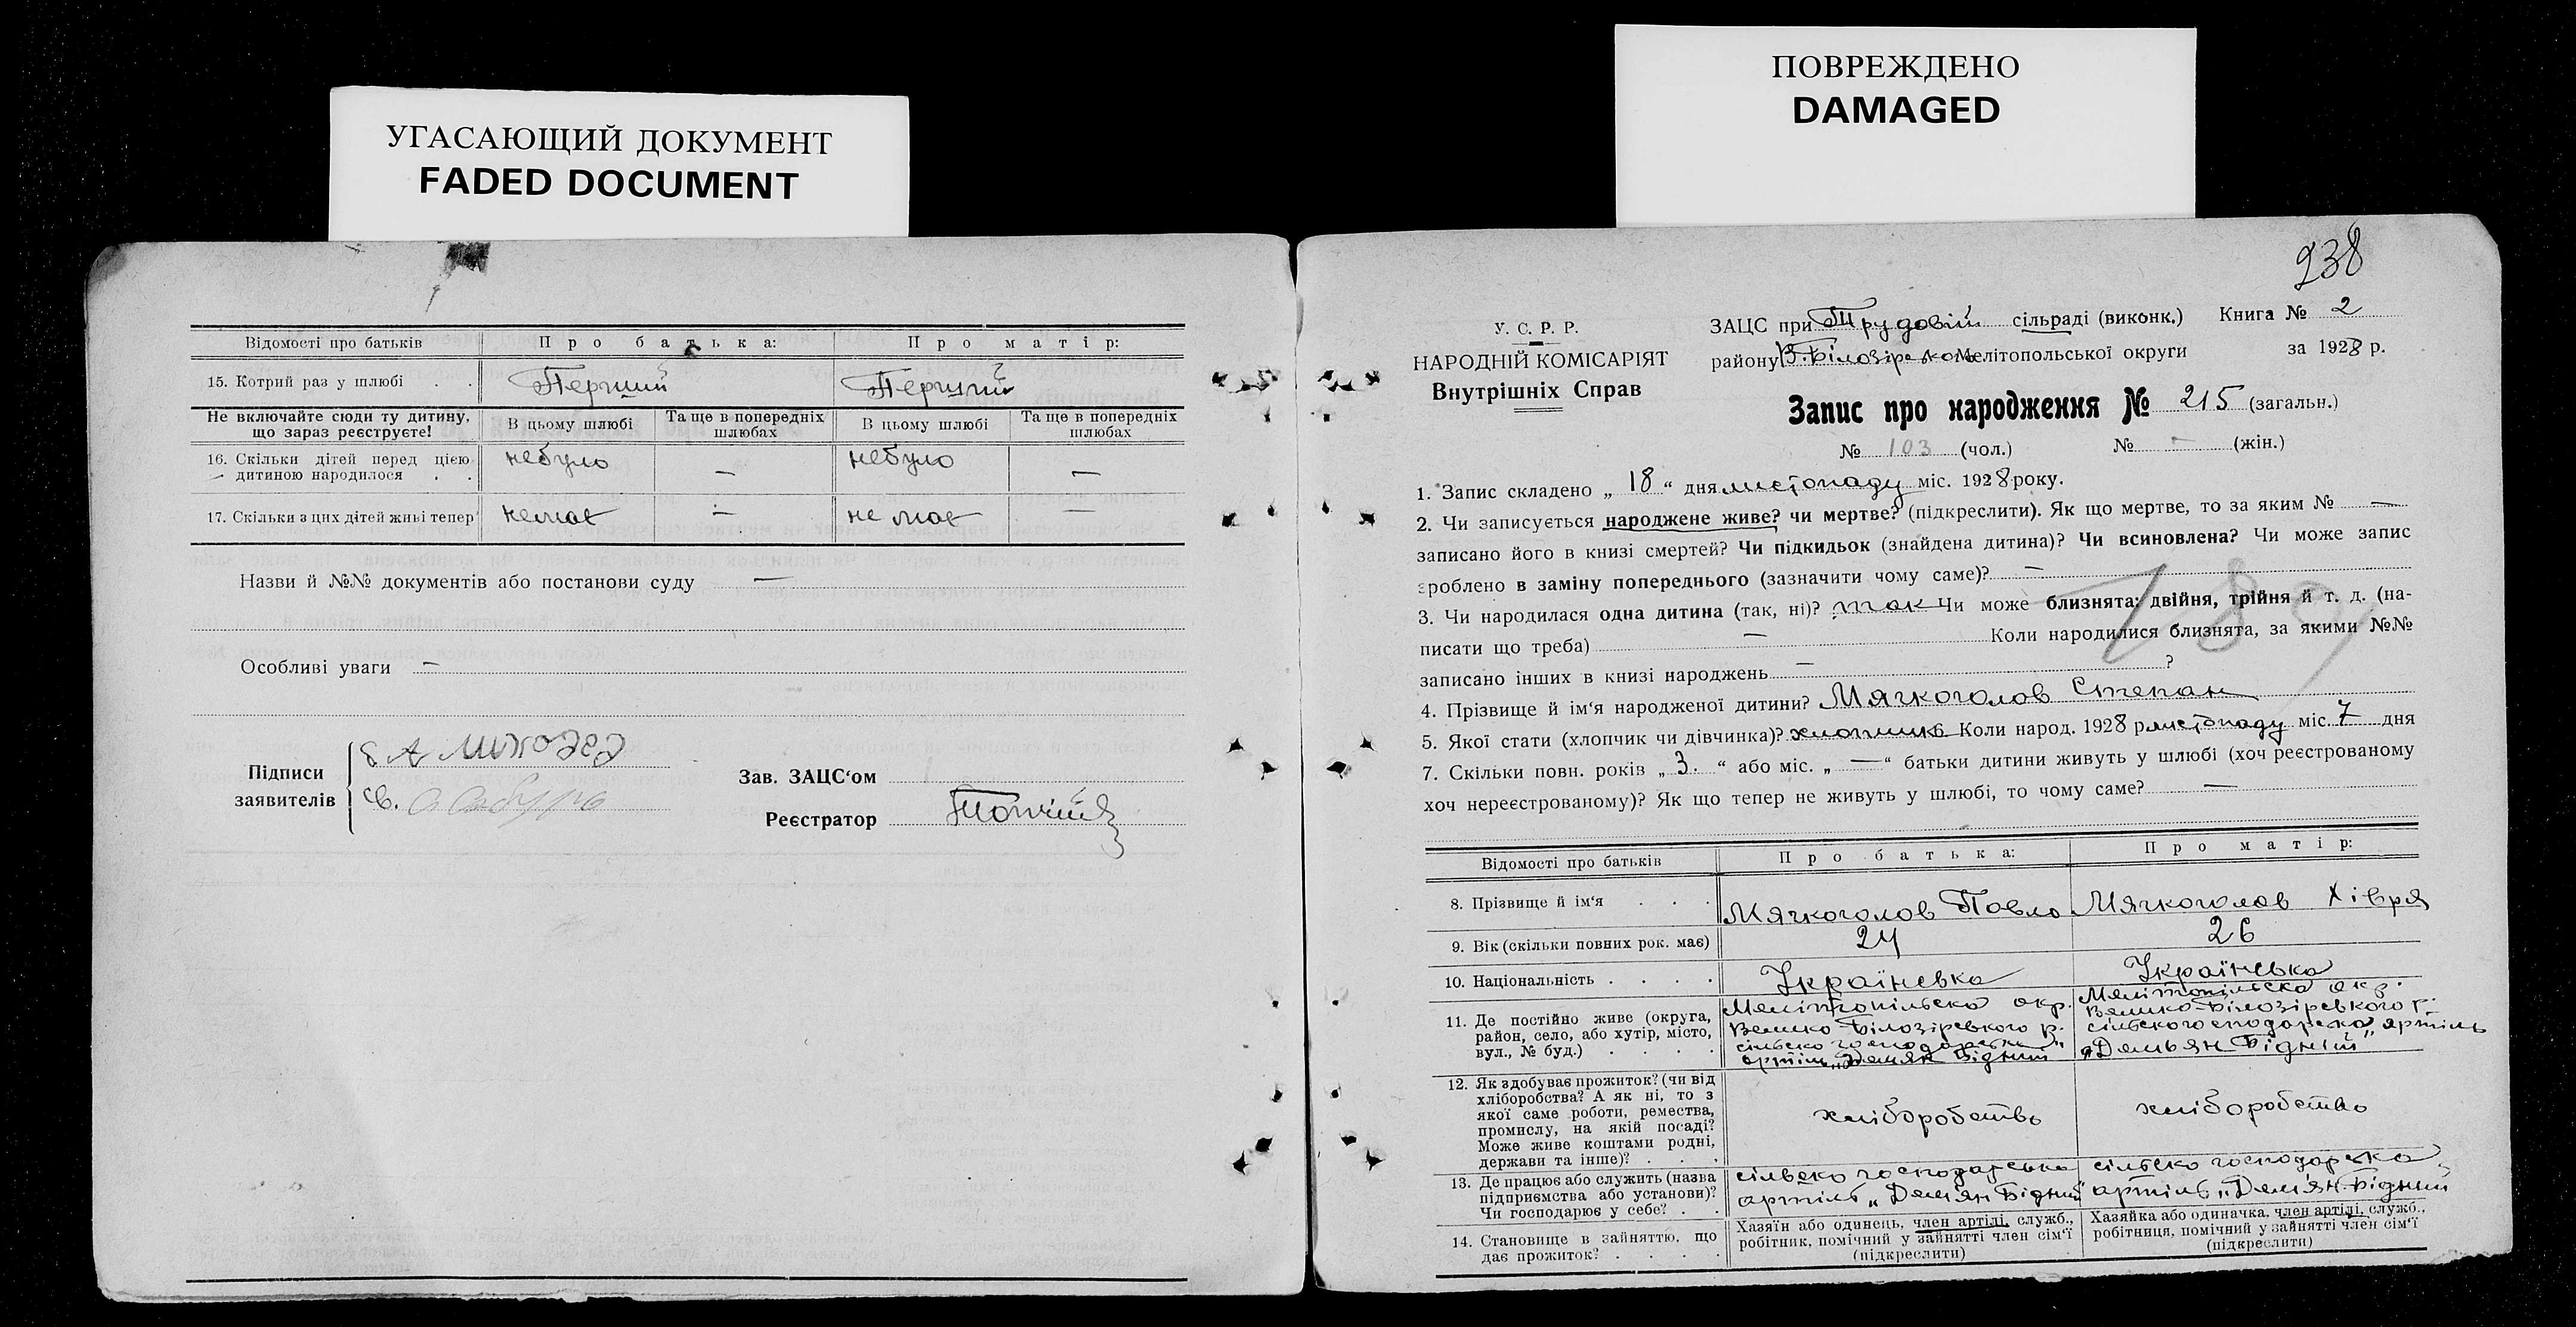 УГАСАЮЩИЙ ДОКУМЕНТ
FADED DOCUMENT
Відомості про батьків Про батька: Про матір:
15. Котрий раз у шлюбі . . Перший Перший
Не включайте сюди ту дитину, що зараз реєструєте! В цьому шлюбі Та ще в попередніх шлюбах В цьому шлюбі Та ще в попередніх шлюбах
16. Скільки дітей перед цією небуло небуло
— дитиною народилося . . — —
17. Скільки з цих дітей живі тепер немає — не має —
Назви й №№ документів або постанови суду —
Особливі уваги —
Підписи
заявителів
св.
Зав. ЗАЦС‘ом
Реєстратор
ПОВРЕЖДЕНО
DAMAGED
238
У. С. Р. Р.
НАРОДНІЙ КОМІСАРІЯТ
Внутрішніх Справ
ЗАЦС при Трудовій сільраді (виконк.) Книга № 2
району В. Білозірсько Мелітопольської округи за 1928 р.
Запис про народження № 215 (загальн.)
№ 103 (чол.) № — (жін.)
1. Запис складено „ 18 “ дня листопаду міс. 1928 року.
2. Чи записується народжене живе? чи мертве? (підкреслити). Як що мертве, то за яким № —
записано його в книзі смертей? Чи підкидьок (знайдена дитина)? Чи всиновлена? Чи може запис
зроблено в заміну попереднього (зазначити чому саме)? —
3. Чи народилася одна дитина (так, ні)? так Чи може близнята: двійня, трійня й т. д. (на-
писати що треба) — Коли народилися близнята, за якими №№
записано інших в книзі народжень — ?
4. Прізвище й ім‘я народженої дитини? Мягкоголов Степан
5. Якої стати (хлопчик чи дівчинка)? хлопчик Коли народ. 1928 р. листопаду міс. 7 дня
7. Скільки повн. років „ 3. “ або міс. „ — “ батьки дитини живуть у шлюбі (хоч реєстрованому
хоч нереєстрованому)? Як що тепер не живуть у шлюбі, то чому саме? —
Відомості про батьків Про батька: Про матір:
8. Прізвище й ім‘я . . . Мягкоголов Павло Мягкоголов Хівря
9. Вік (скільки повних рок. має) 24 26
10. Національність . . . . Українська Українська
11. Де постійно живе (округа, район, село, або хутір, місто, вул., № буд.) . . . .
Мелітопільска окр.
Велико Білозірського р.
сільско господарська
артіль „Демян Бідний“
Мелітопільска окр.
Велико Білозірського р.
сільскогосподарска артіль
„Демьян Бідний“
12. Як здобуває прожиток? (чи від хліборобства? А як ні, то з якої саме роботи, ремества, промислу, на якій посаді? Може живе коштами родні, держави та інше)? . . . хліборобство хліборобство
13. Де працює або служить (назва підприємства або установи)? Чи господарює у себе? . .
сільско господарська
артіль „Демян Бідний
сільско господарска
артіль „Демян Бідний
14. Становище в зайняттю, що дає прожиток? . . . .
Хазяїн або одинець, член артілі, служб.,
робітник, помічний у зайнятті член сім‘ї
(підкреслити)
Хазяйка або одиначка, член артілі, служб.,
робітниця, помічний у зайнятті член сім‘ї
(підкреслити)